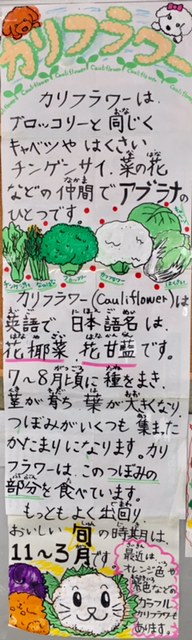 カリフラワー
Cauliflower Cauliflower Cauliflower
カリフラワーは、
ブロッコリーと同じく
キャベツや はくさい
チンゲンサイ、菜の花
などの仲間で アブラナの
ひとつです。
カリフラワー(Cauliflower)は
英語で 日本語名は、
花椰菜 花甘藍です。
7～8月頃に種をまき、
茎が育ち 葉が大きくなり、
つぼみがいくつも集まった
かたまりになります。カリ
フラワーは、このつぼみの
部分を食べています。
もっともよく出回り
おいしい旬の時期は、
11～3月です
最近は
オレンジ色や
紫色などの
カラフル
カリフラワーも
あります。